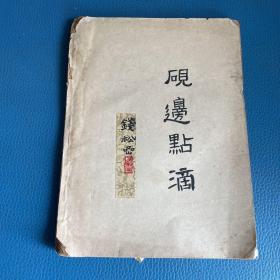 硯邊點滴
錢松嵒